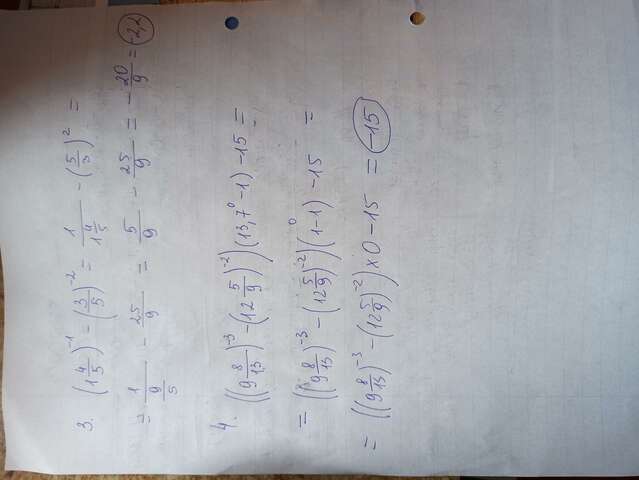 3. (1 4/5)^-1 - (3/5)^-2 = 1/(1 4/5) - (5/3)^2 =
= 1/(9/5) - 25/9 = 5/9 - 25/9 = - 20/9 = -2,2
4. ((9 8/13)^-3 - (12 5/9)^-2)(13,7^0 - 1) - 15 =
= ((9 8/13)^-3 - (12 5/9)^-2)(1-1)^0 - 15 =
= ((9 8/13)^-3 - (12 5/9)^-2) × 0 - 15 = -15